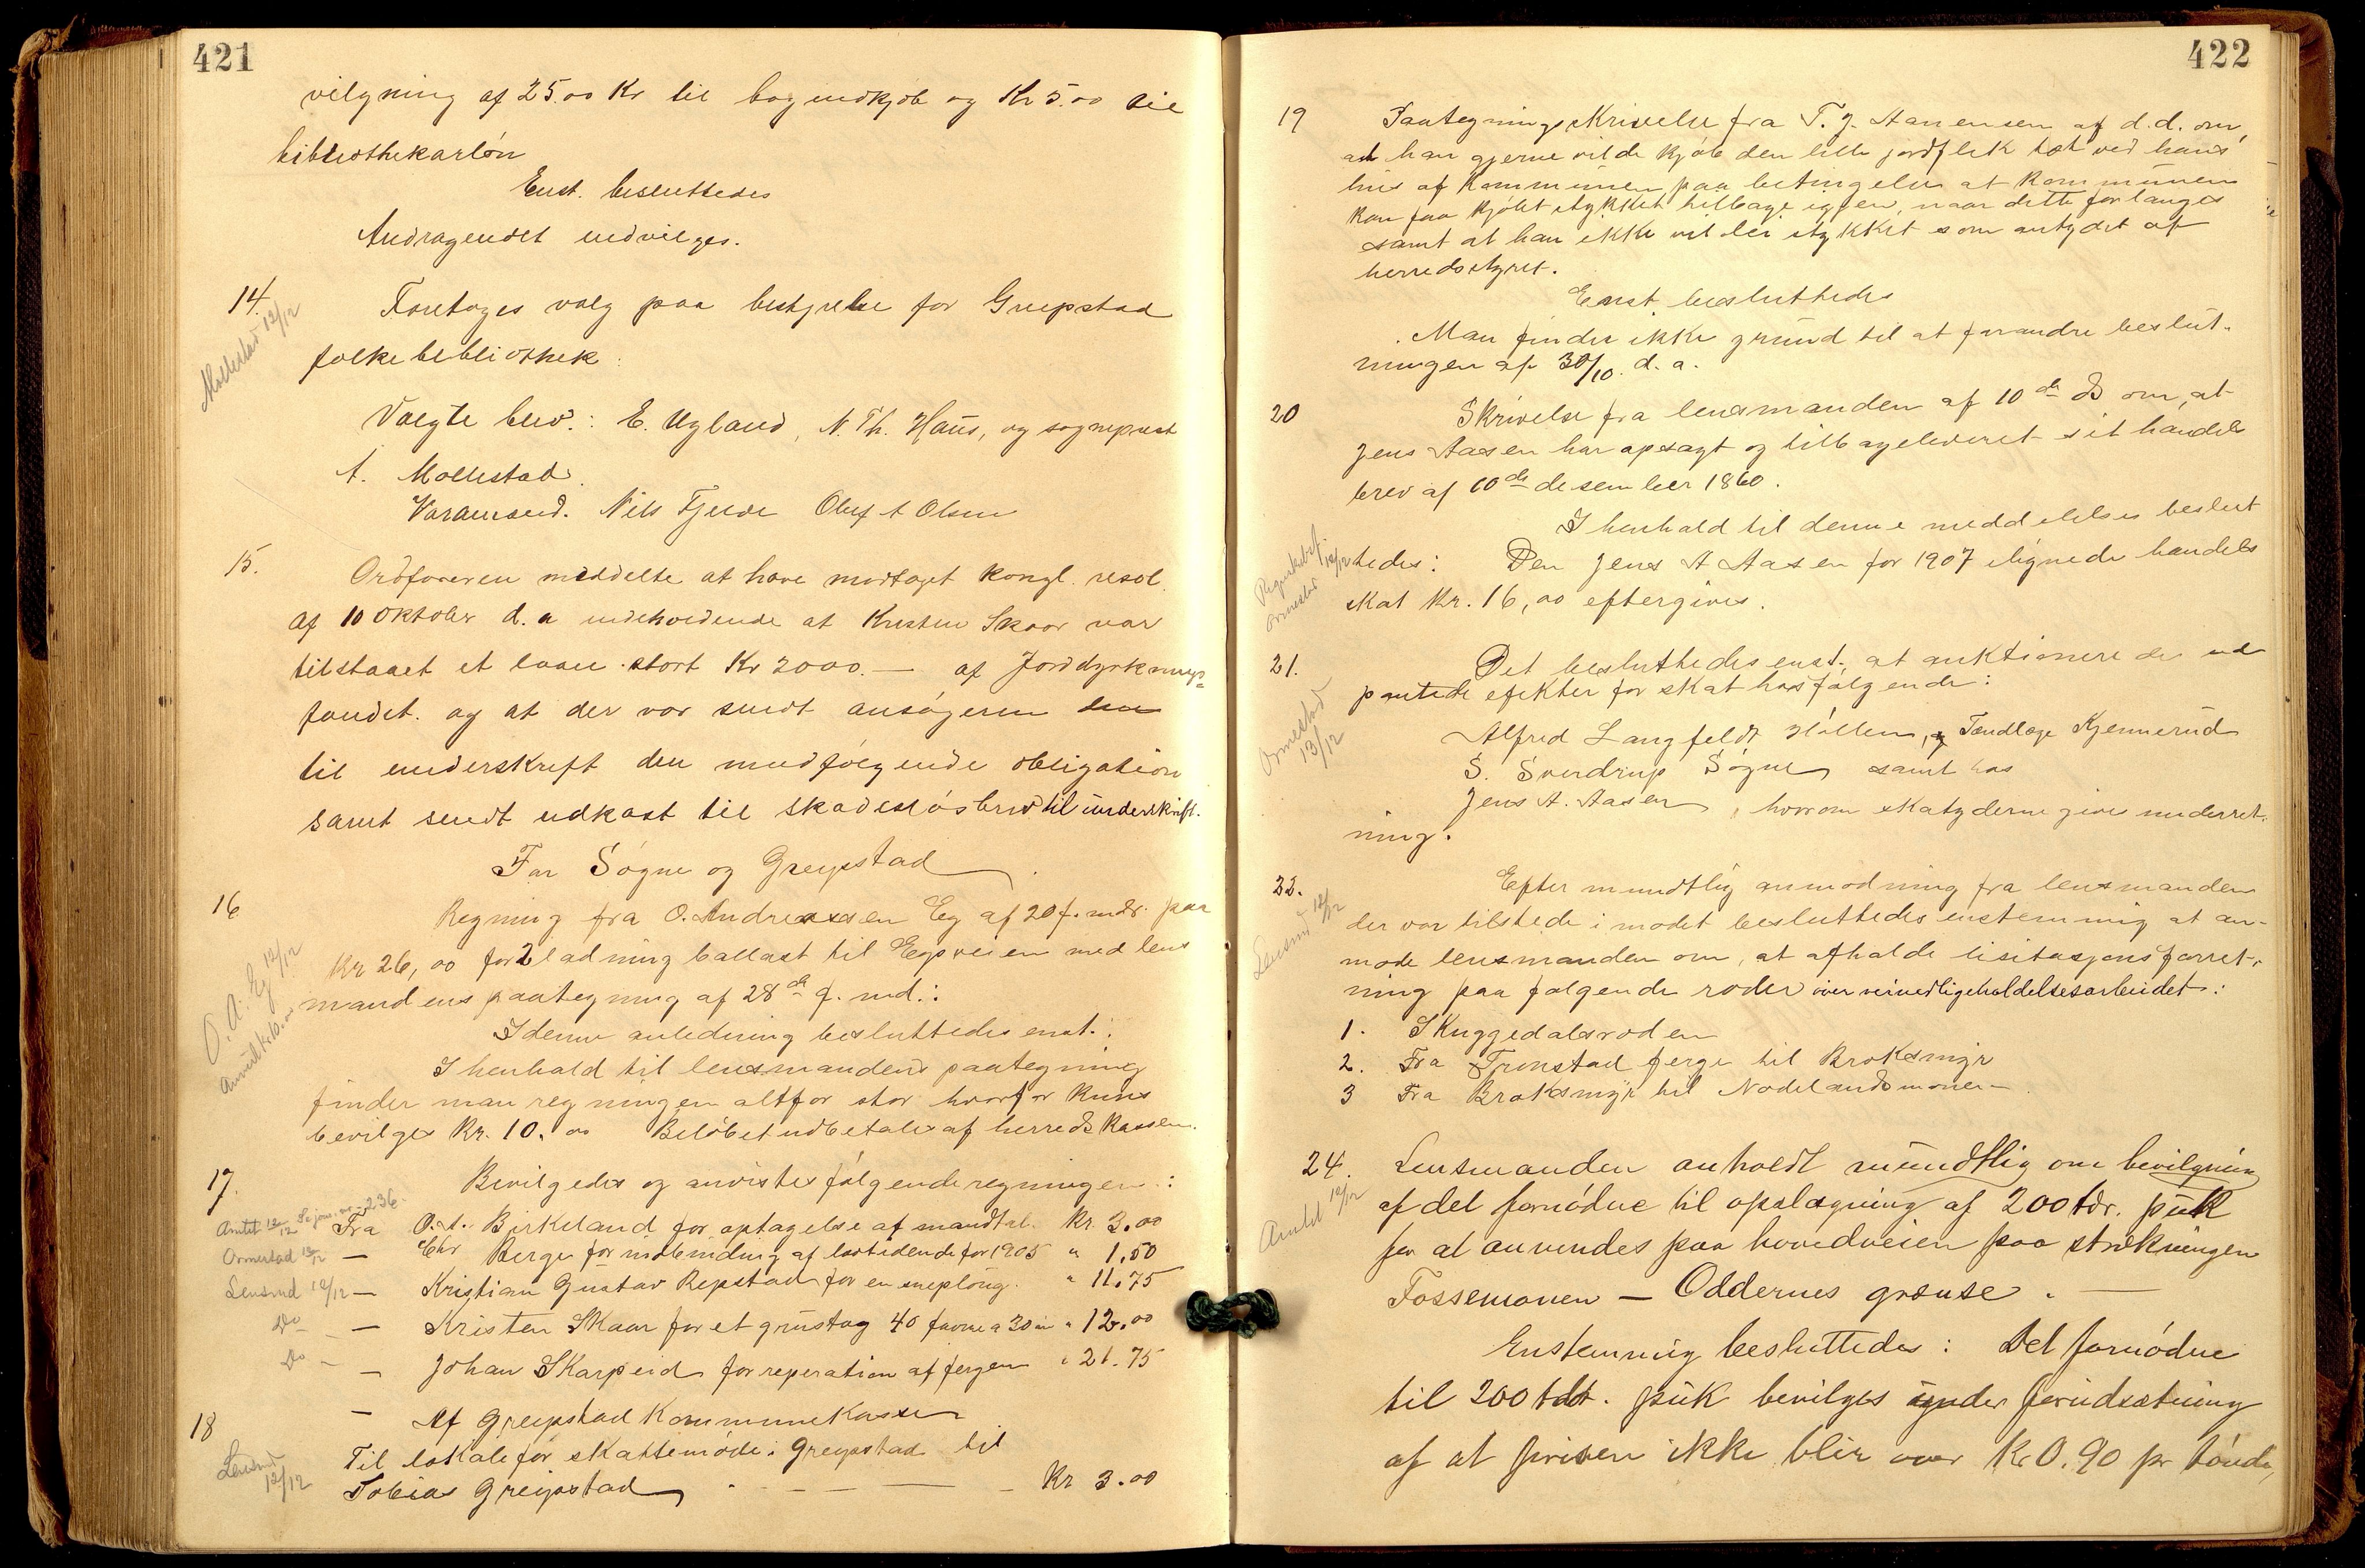 421
vilgning af 25.00 Kr til bogindkjøb og Kr 5.00 til
bibliothekarløn
Enst. besluttedes
Andragendet indvilges.
14. Foretoges valg paa bestyrelse for Greipstad
Mollestad 12/12
folkebibliothek:
Valgte blev: E. Ugland, N. Th. Haus, og sogneprest
A. Mollestad.
Varamænd. Nils Tjelde Oluf A Olsen
15. Ordføreren meddelte at have modtaget kongl. resol.
af 10 oktober d.a indeholdende at Kristen Skaar var
tilstaaet et laan stort Kr 2000.— af Jorddyrknings-
fondet. og at der var sendt ansøgeren den
til underskrift den medfølgende obligation
samt sendt udkast til skadesløsbrev til underskrift.
For Søgne og Greipstad
16. Regning fra O. Andreassen Eg af 20 f. mdr. paa
O. A. Eg 12/12
Kr 26,00 for 2 ladning ballast til Egsveien med lens
mandens paategning af 28de f. md.:
I denne anledning besluttedes enst.:
I henhold til lensmandens paategning
finder man regningen altfor stor hvorfor kuns
bevilges Kr. 10.00 Beløbet udbetales af herredskassen.
17. Bevilgedes og anvistes følgende regninger:
Amtet 12/12 236.
Fra O. A. Birkeland for optagelse af mandtal. Kr. 3.00
Ormestad 12/12 — Chr Berge for indbinding af lovtidende for 1905 " 1,50
Lensmd 12/12 — Kristian Gustav Repstad for en sneploug. " 11.75
Do — — Kristen Skaar for et grustag 40 favne a 30 øre " 12.00
Do — — Johan Skarpeid for reperation af fergen " 21.75
18 — Af Greipstad Kommunekasse
Lensmd 12/12
Til lokale for skattemøde i Greipstad til
Tobias Greipstad — — — Kr 3.00
422
19 Paategningsskrivelse fra T. J. Aanensen af d.d. om,
at han gjerne vilde kjøbe den lille jordflek tæt ved hans
hus af kommunen paa betingelse at kommunen
kan faa kjøbt stykket tilbage igjen, naar dette forlanges
samt at han ikke vil lei stykket som antydet af
herredsstyret.
Enst. besluttedes
Man finder ikke grund til at forandre beslut-
ningen af 30/10. d.a.
20 Skrivelse fra lensmanden af 10de ds om, at
Jens Aasen har opsagt og tilbageleveret sit handels
brev af 10de desember 1860.
I henhold til denne meddelelse beslut
Ormestad 12/12
tedes: Den Jens A Aasen for 1907 ilignede handels
skat Kr. 16,00 eftergives.
21. Det besluttedes enst., at auktionere de ud
pantede efekter for skat hos følgende:
Ormestad 13/12
Alfred Langfeldt Høllen, og Tandlæge Kjennerud
S. Sverdrup Søgne samt hos
Jens A. Aasen, hvorom skatyderne gives underret-
ning.
22. Efter mundtlig anmodning fra lensmanden
Lensmd 12/12
der var tilstede i mødet besluttedes enstemmig at an-
mode lensmanden om, at afholde lisitasjonsforret-
ning paa følgende roder over veivedligeholdelsesarbeidet:
1. Skuggedalsroden
2. Fra Tronstad ferge til Broksmyr
3 Fra Broksmyr til Nodelandsmoner—
24. Lensmanden anholdt mundtlig om bevilgning
Amtet 12/12
af det fornødne til opslægning af 200 tdr. puk
for at anvendes paa hovedveien paa strækningen
Fossemonen — Oddernes grænse. —
Enstemmig besluttedes: Det fornødne
til 200 tdr. puk bevilges under forudsætning
af at prisen ikke blir over Kr 0.90 pr tønde,